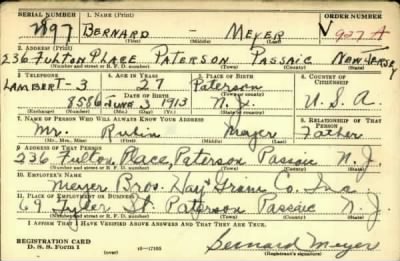 SERIAL NUMBER 1. NAME (Print) ORDER NUMBER
2897 BERNARD - MEYER V 907-A
2. ADDRESS (Print)
236 FULTON PLACE PATERSON PASSAIC NEW JERSEY
(Number and street or R. F. D. number) (Town) (County) (State)
3. TELEPHONE 4. AGE IN YEARS 5. PLACE OF BIRTH 6. COUNTRY OF CITIZENSHIP
LAMBERT-3 27 Paterson
DATE OF BIRTH (Town or county)
8586 JUNE 3 1913 N. J. U. S. A.
(Exchange) (Number) (Mo.) (Day) (Yr.) (State or country)
7. NAME OF PERSON WHO WILL ALWAYS KNOW YOUR ADDRESS 8. RELATIONSHIP OF THAT PERSON
Mr. Rubin Meyer Father
(Mr., Mrs., Miss) (First) (Middle) (Last)
9. ADDRESS OF THAT PERSON
236 Fulton Place, Paterson Passaic N. J.
(Number and street or R. F. D. number) (Town) (County) (State)
10. EMPLOYER'S NAME
Meyer Bros. Hay & Grain Co. Inc.
11. PLACE OF EMPLOYMENT OR BUSINESS
69 Tyler St. Paterson Passaic N. J.
(Number and street or R. F. D. number) (Town) (County) (State)
I AFFIRM THAT I HAVE VERIFIED ABOVE ANSWERS AND THAT THEY ARE TRUE.
REGISTRATION CARD
D. S. S. FORM 1 (over) 16-17105 Bernard Meyer
(Registrant's signature)